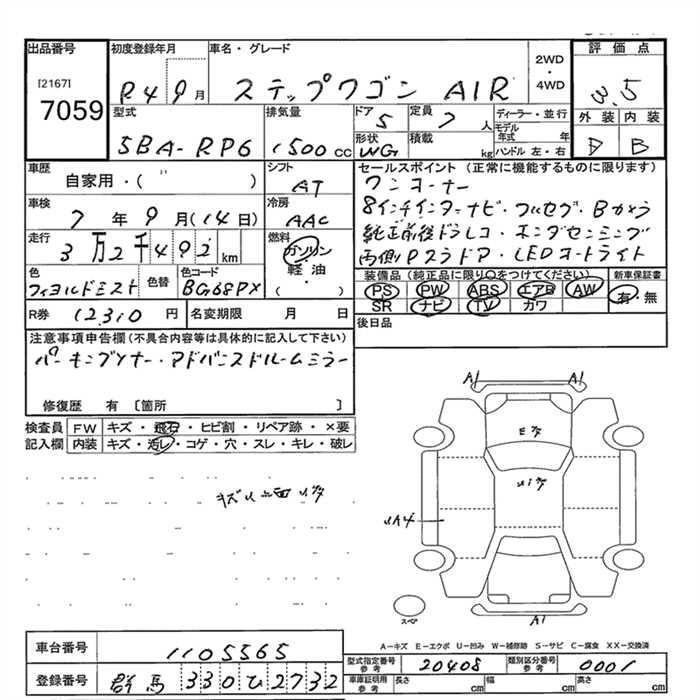 出品番号
[2167]
7059
初度登録年月
R4 9月
車名・グレード
ステップワゴン AIR
2WD
・
4WD
評価点
3.5
外装 内装
D B
型式
5BA-RP6
排気量
1500 cc
ドア
5
定員
7 人
ディーラー・並行
モデル年式 年
形状
WG
積載
kg
ハンドル 左・右
車歴
自家用・( )
シフト
AT
車検
7年 9月(14日)
冷房
AAC
走行
3万2千492km
燃料
ガソリン
軽・油
( )
色
フィヨルドミスト
色替
色コード
BG68PX
R券 12310 円
名変期限 月 日
セールスポイント(正常に機能するものに限ります)
ワンオーナー
8インチインターナビ・フルセグ・Bカメラ
純正前後ドラレコ・ホンダセンシング
両側Pスラドア・LEDオートライト
装備品(純正品に限り○をつけてください)
新車保証書
PS PW ABS エアB AW
SR ナビ TV カワ
有・無
後日品
注意事項申告欄(不具合内容等は具体的に記入して下さい)
パーキングソナー・アドバンスドルームミラー
修復歴 有 [箇所 ]
検査員記入欄
FW キズ・飛石・ヒビ割・リペア跡・×要
内装 キズ・汚レ・コゲ・穴・スレ・キレ・破レ
A1 A1
A1
スペア
A-キズ E-エクボ U-凹み W-補修跡 S-サビ C-腐食 XX-交換済
車台番号
1105565
登録番号
群馬 330 ひ 2732
型式指定番号
参考
20408
類別区分番号
参考
0001
車庫証明用
参考
長さ cm
幅 cm
高さ cm